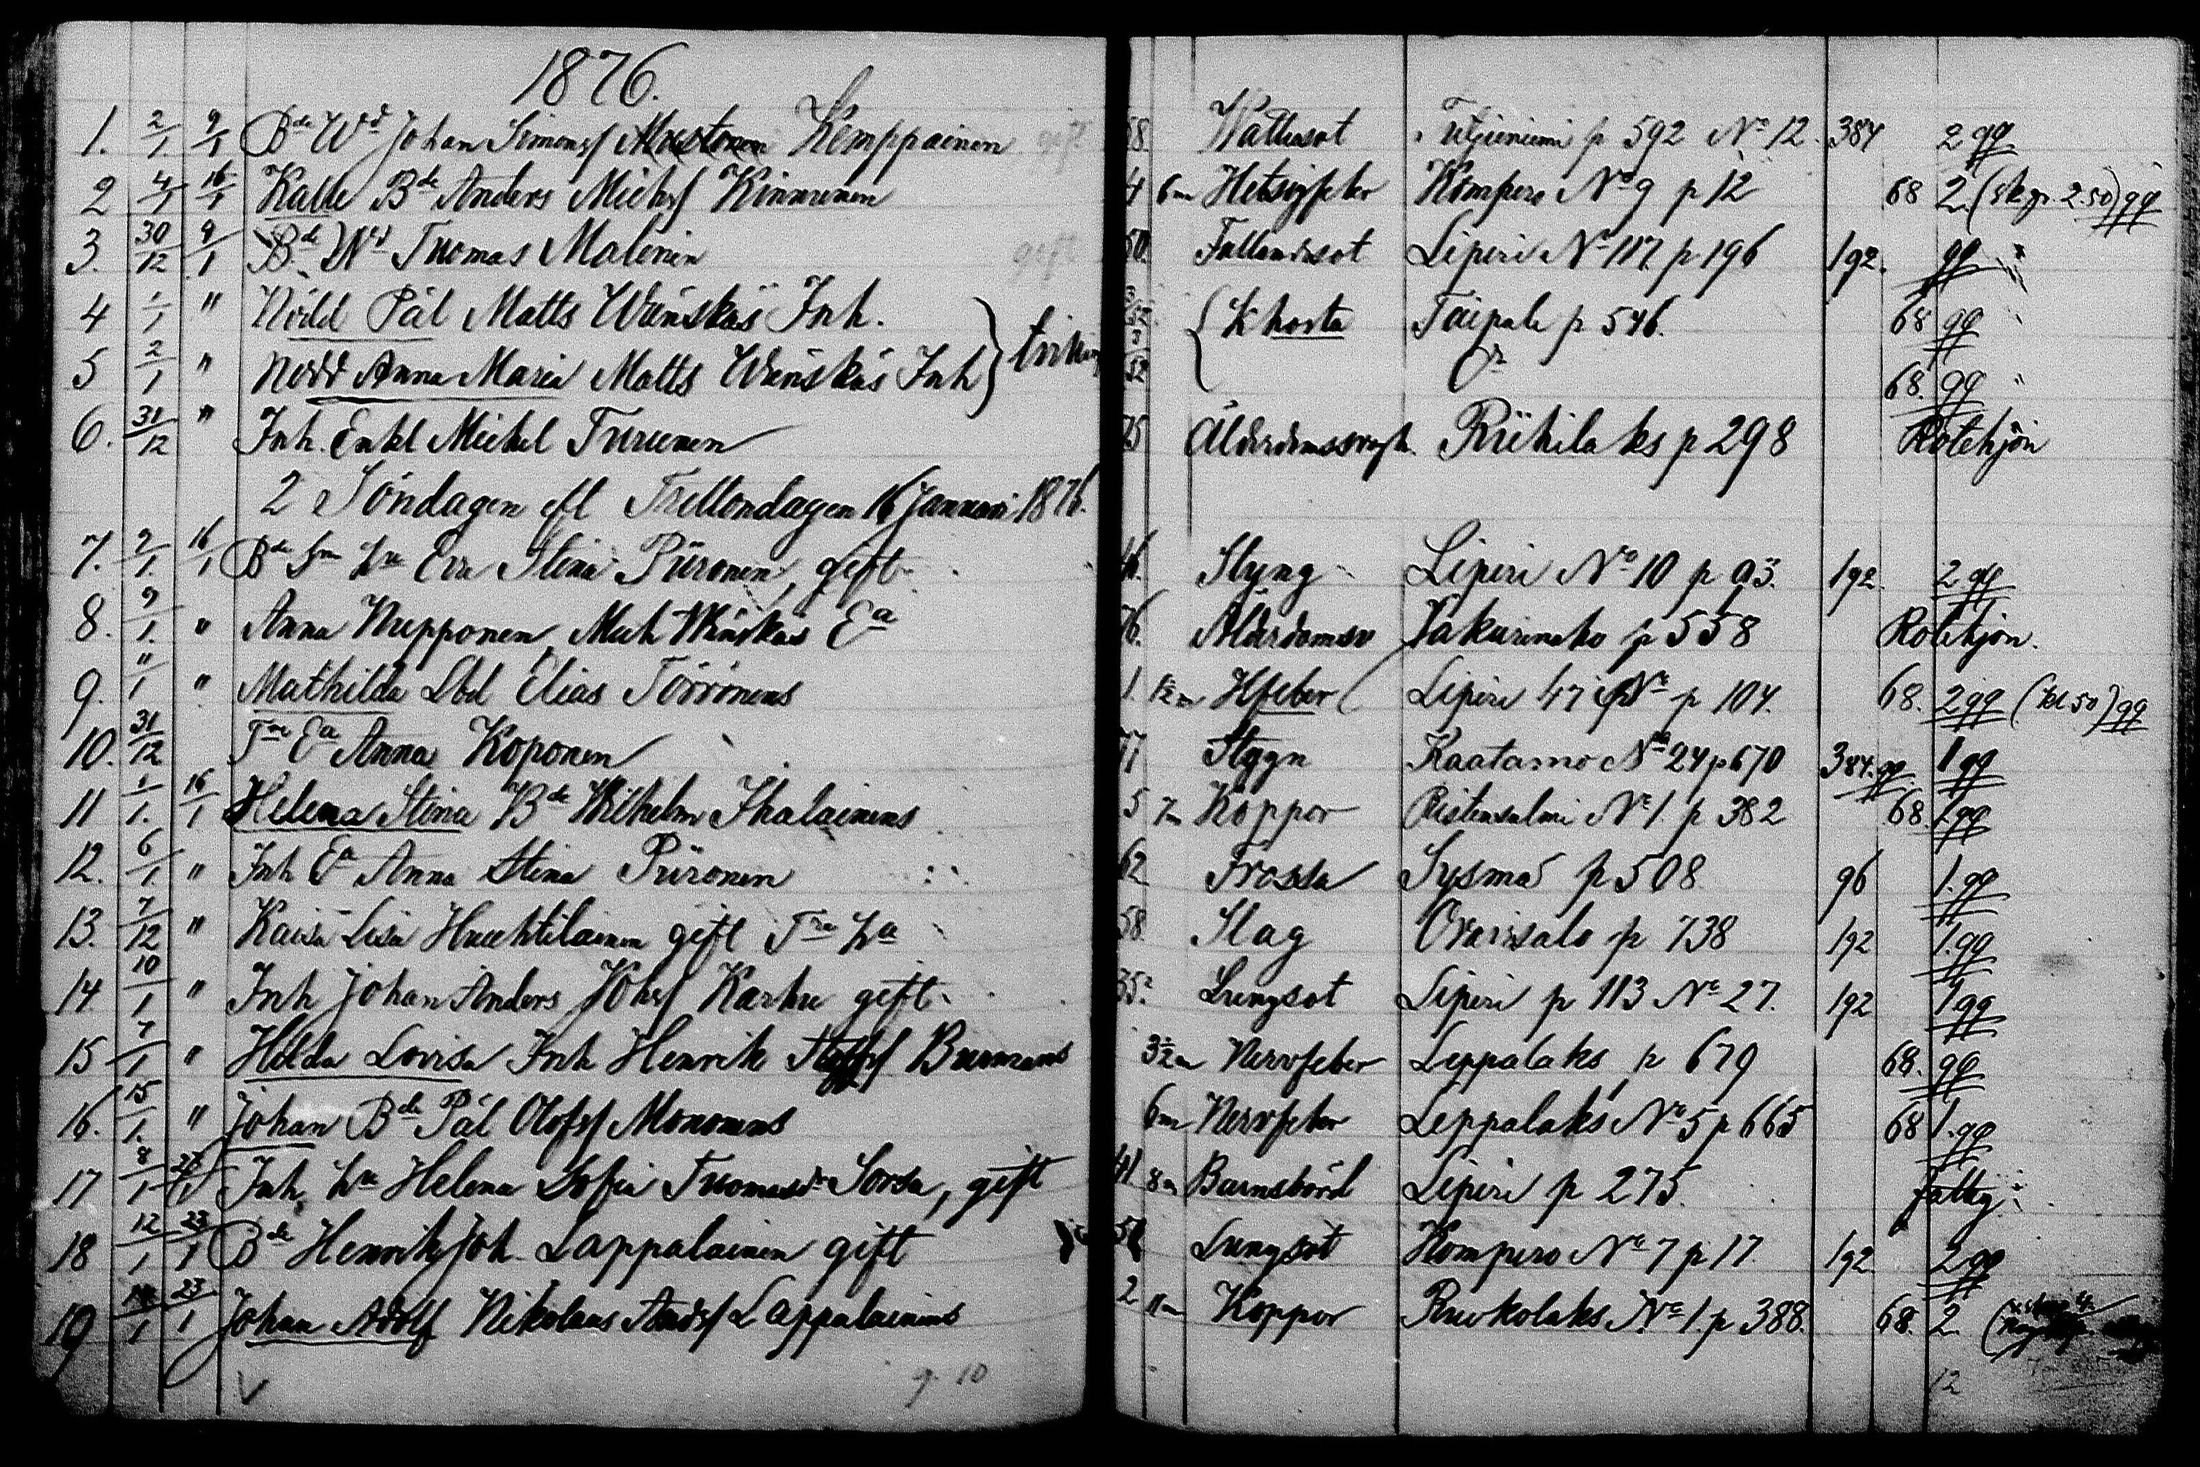 1876.
1. 2/1. 9/1 Bde Wd Johan Simonsf Mustonen Kemppainen gift 58. Wattusot p 592 No 12. 384 2 gg
2 4/1 16/1 Kalle Bde Anders Michsf Kinnunen 4 6m Hetsigfeber Kompero No 9 p 12 68 2 (sk gr. 2.50) gg
3. 30/12 9/1 Bde Wd Tuomas Malinin gift 50. Fallandsot Liperi No 117. p 196 192. gg
4 1/1 " Nödd Pål Matts Wänskäs Inh. K hosta Taipale p 546. 68 gg
5 2/1 " Nödd Anna Maria Matts Wänskäs Inh 68. gg
6. 31/12 " Inh. Enkl Michel Turunen 75 Ålderdomssvagh. Riihilaks p 298 Rotehjon
2 Söndagen eft Trettondagen 16 Januari 1876.
7. 9/1. 16/1 Bde Sm Hu Eva Stina Piironen, gift 46. Styng Liperi No 10 p 93. 192 2 gg
8. 9/1. " Anna Nupponen, Mich Wänskäs Ea 76. Ålderdomsv p 558 Rotehjon.
9. 11/1 " Mathilda Lbd Elias Törrönens 1 1/2m Hfeber Liperi 47 No p 104. 68. 2 gg (kl 50) gg
10. 31/12 Tre Ea Anna Koponen 77 Stygn Kaatamo No 24 p 670 384. gg 1 gg
11 1/1. 16/1 Helena Stina Bde Wilhelm Ihalainens 5 7m Koppor Ristinsalmi No 1. p 382 68. 1 gg
12. 6/1. " Inh Ea Anna Stina Piironen 62 Frossa Sysmä p 508. 96 1. gg
13. 7/12 " Kaisa Lisa Huuhtilainen gift Tre Hu 58. Slag p 738 192 1. gg
14. 10/1 " Inh Johan Anders Johsf Karhu gift. 35. Lungsot Liperi p 113 No 27. 192 1 gg
15 7/1 " Hilda Lovisa Inh Henrik Burmans 3 1/2m Nervfeber Leppälaks p 679 68. gg
16. 15/1. " Johan Bde Pål Olofsf Mononens 6m Nervfeber Leppalaks No 5 p 665 68 1. gg
17 8/1 23/1 Inh. Hu Helena Sofia Tuomasdr Sorsa, gift 41 8m Barnsbörd Liperi p 275. fattig
18 12/1 23/1 Bde Henrik Joh Lappalainen gift Lungsot Kompero No 7 p 17. 192 2 gg
19 14/1 23/1 Johan Adolf Nikolaus Andsf Lappalainens 2 11m Koppor Ruokolaks No 1. p 388. 68. 2.
g. 10
12